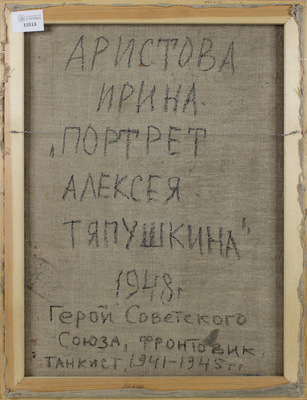 11513
АРИСТОВА
ИРИНА.
„ПОРТРЕТ
АЛЕКСЕЯ
ТЯПУШКИНА"
1948г
Герой Советского
Союза, фронтовик,
танкист, 1941-1945 гг.